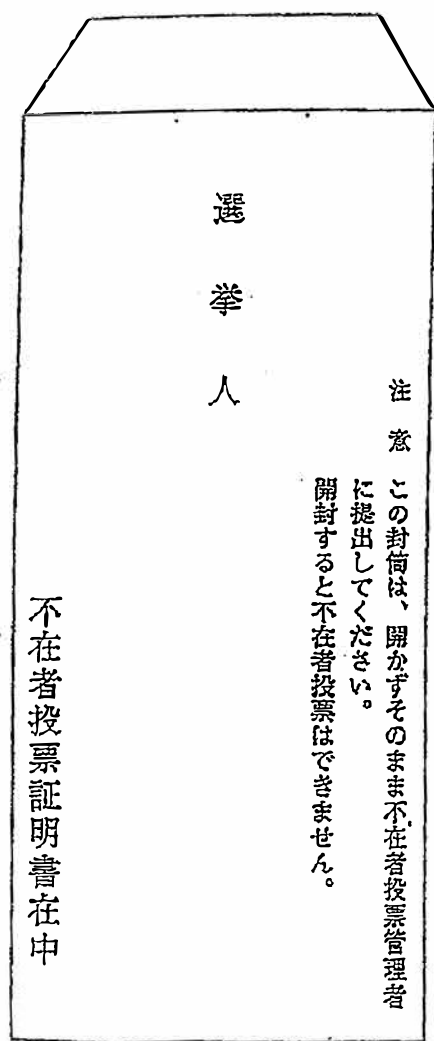 注意 この封筒は、開かずそのまま不在者投票管理者
に提出してください。
開封すると不在者投票はできません。
選挙人
不在者投票証明書在中